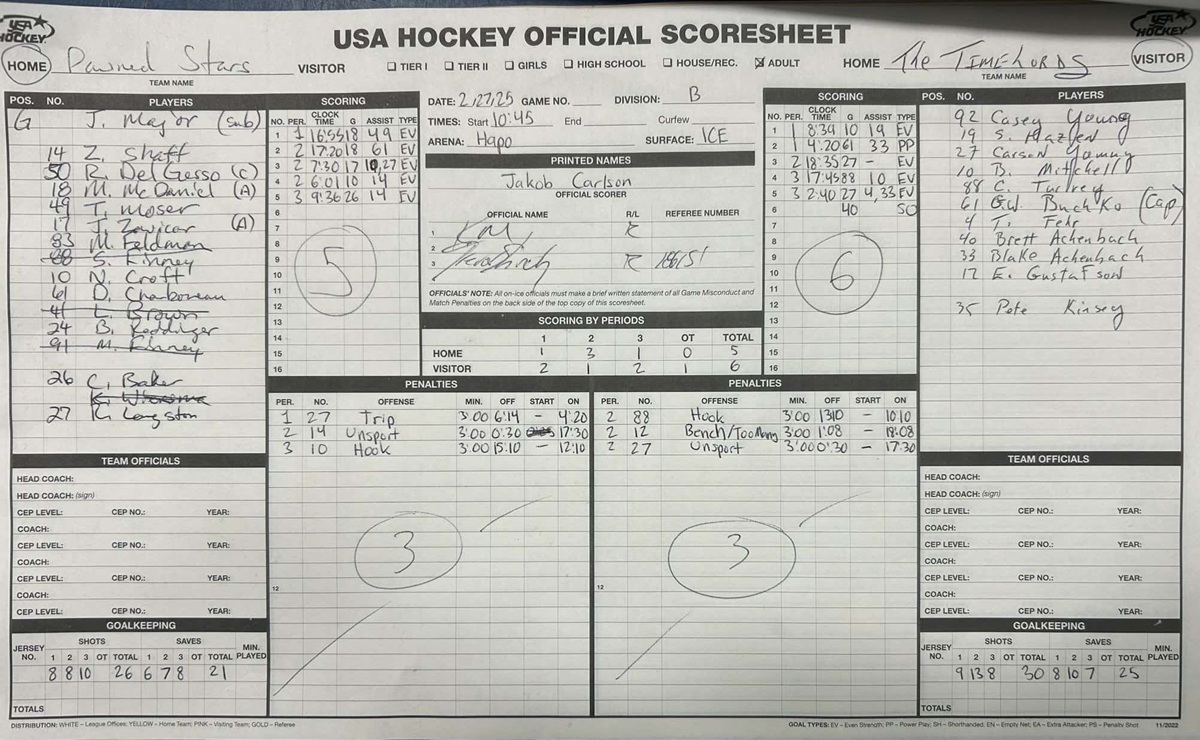 USA HOCKEY
USA HOCKEY OFFICIAL SCORESHEET
USA HOCKEY
HOME Pawned Stars VISITOR
TEAM NAME
TIER I TIER II GIRLS HIGH SCHOOL HOUSE/REC. ADULT
HOME The TimeLords VISITOR
TEAM NAME
POS. NO. PLAYERS
G J. Mayor (sub)
14 Z. Shaft
50 R. DelGesso (C)
18 M. McDaniel (A)
49 T. Moser
17 J. Zavicar (A)
83 M. Feldman
88 S. Kinney
10 N. Croft
61 D. Charboneau
41 L. Brown
24 B. Reddinger
91 M. Kinney
26 C. Baker
27 R. Langston
SCORING
NO. PER. CLOCK TIME G ASSIST TYPE
1 1 16:55 18 49 EV
2 2 17:20 18 61 EV
3 2 7:30 17 10,27 EV
4 2 6:01 10 14 EV
5 3 9:36 26 14 EV
6
7
8
9
10
11
12
13
14
15
16
5
DATE: 2/27/25 GAME NO. DIVISION: B
TIMES: Start 10:45 End Curfew
ARENA: Hapo SURFACE: ICE
PRINTED NAMES
Jakob Carlson
OFFICIAL SCORER
OFFICIAL NAME R/L REFEREE NUMBER
1 R
2
3 R
OFFICIALS' NOTE: All on-ice officials must make a brief written statement of all Game Misconduct and
Match Penalties on the back side of the top copy of this scoresheet.
SCORING BY PERIODS
1 2 3 OT TOTAL
HOME 1 3 1 0 5
VISITOR 2 1 2 1 6
SCORING
NO. PER. CLOCK TIME G ASSIST TYPE
1 1 8:39 10 19 EV
2 1 4:20 61 33 PP
3 2 18:35 27 - EV
4 3 17:45 88 10 EV
5 3 2:40 27 4,33 EV
6 40 SO
7
8
9
10
11
12
13
14
15
16
6
POS. NO. PLAYERS
92 Casey Young
19 S. Hazlen
27 Carson Young
10 B. Mitchell
88 C. Turvey
61 G.W. Buchko (Cap)
4 T. Fehr
40 Brett Achenbach
33 Blake Achenbach
12 E. Gustafson
35 Pete Kinsey
PENALTIES
PER. NO. OFFENSE MIN. OFF START ON
1 27 Trip 3:00 6:14 - 4:20
2 14 Unsport 3:00 0:30 17:30
3 10 Hook 3:00 15:10 - 12:10
3
12
PENALTIES
PER. NO. OFFENSE MIN. OFF START ON
2 88 Hook 3:00 1310 - 1010
2 12 Bench/TooMany 3:00 1:08 - 18:08
2 27 Unsport 3:00 0:30 - 17:30
3
12
TEAM OFFICIALS
HEAD COACH:
HEAD COACH: (sign)
CEP LEVEL: CEP NO.: YEAR:
COACH:
CEP LEVEL: CEP NO.: YEAR:
COACH:
CEP LEVEL: CEP NO.: YEAR:
COACH:
CEP LEVEL: CEP NO.: YEAR:
GOALKEEPING
SHOTS SAVES
JERSEY NO. 1 2 3 OT TOTAL 1 2 3 OT TOTAL MIN. PLAYED
8 8 10 26 6 7 8 21
TOTALS
TEAM OFFICIALS
HEAD COACH:
HEAD COACH: (sign)
CEP LEVEL: CEP NO.: YEAR:
COACH:
CEP LEVEL: CEP NO.: YEAR:
COACH:
CEP LEVEL: CEP NO.: YEAR:
COACH:
CEP LEVEL: CEP NO.: YEAR:
GOALKEEPING
SHOTS SAVES
JERSEY NO. 1 2 3 OT TOTAL 1 2 3 OT TOTAL MIN. PLAYED
9 13 8 30 8 10 7 25
TOTALS
DISTRIBUTION: WHITE – League Offices; YELLOW – Home Team; PINK – Visiting Team; GOLD – Referee
GOAL TYPES: EV – Even Strength; PP – Power Play; SH – Shorthanded; EN – Empty Net; EA – Extra Attacker; PS – Penalty Shot 11/2022